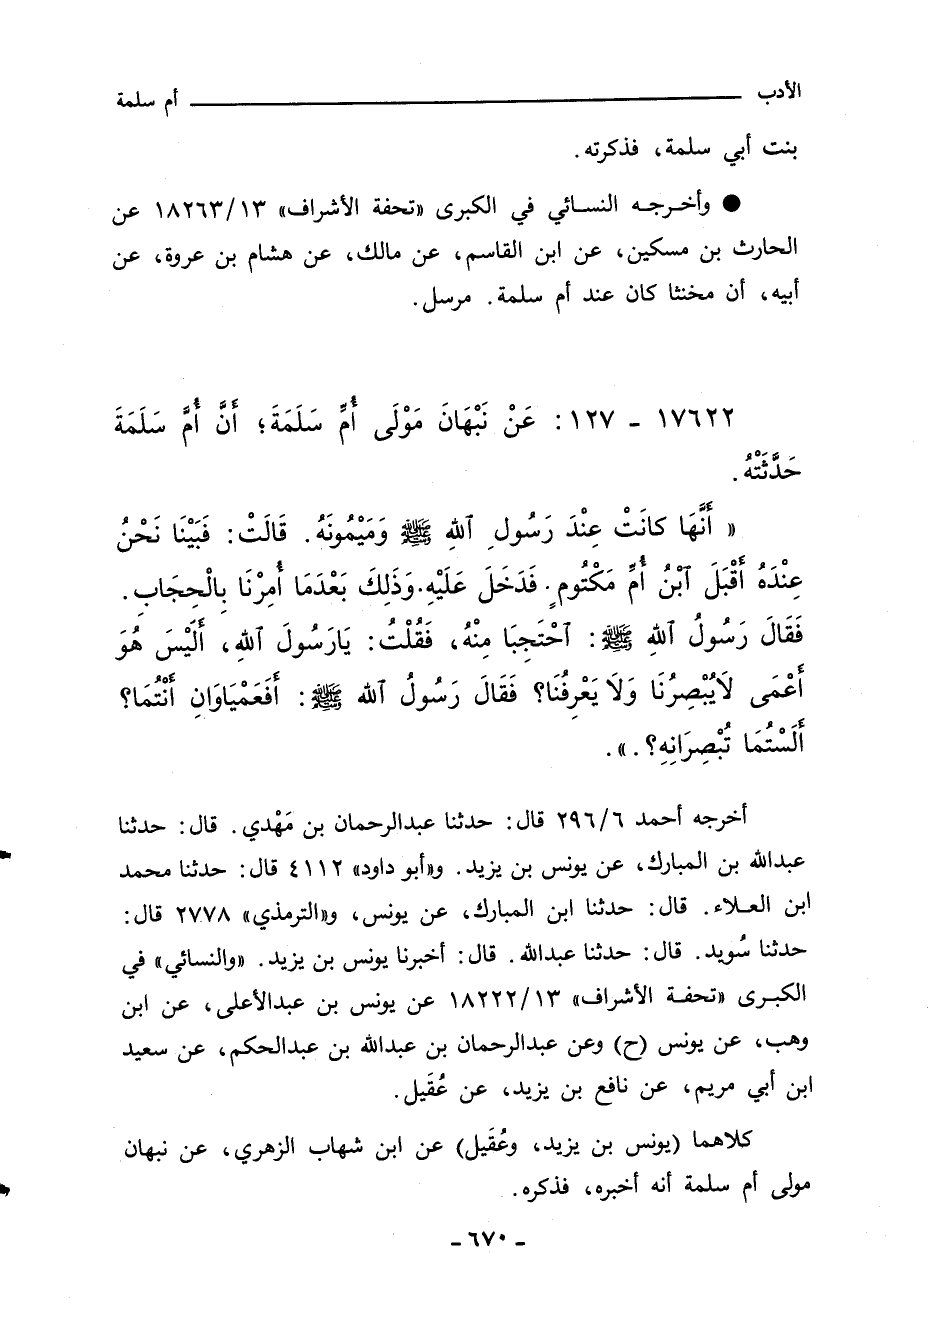 الأدب ــــــــــ أم سلمة
بنت أبي سلمة، فذكرته.
● وأخرجه النسائي في الكبرى «تحفة الأشراف» ١٨٢٦٣/١٣ عن
الحارث بن مسكين، عن ابن القاسم، عن مالك، عن هشام بن عروة، عن
أبيه، أن مخنثا كان عند أم سلمة. مرسل.
١٧٦٢٢ - ١٢٧: عَنْ نَبْهَانَ مَوْلَى أُمِّ سَلَمَةَ؛ أَنَّ أُمَّ سَلَمَةَ
حَدَّثَتْهُ.
« أَنَّهَا كَانَتْ عِنْدَ رَسُولِ ٱللهِ ﷺ وَمَيْمُونَهُ. قَالَتْ: فَبَيْنَا نَحْنُ
عِنْدَهُ أَقْبَلَ ٱبْنُ أُمِّ مَكْتُومٍ. فَدَخَلَ عَلَيْهِ. وَذَلِكَ بَعْدَمَا أُمِرْنَا بِالْحِجَابِ.
فَقَالَ رَسُولُ ٱللهِ ﷺ: ٱحْتَجِبَا مِنْهُ، فَقُلْتُ: يَارَسُولَ ٱللهِ، أَلَيْسَ هُوَ
أَعْمَى لَايُبْصِرُنَا وَلَا يَعْرِفُنَا؟ فَقَالَ رَسُولُ ٱللهِ ﷺ: أَفَعَمْيَاوَانِ أَنْتُمَا؟
أَلَسْتُمَا تُبْصِرَانِهِ؟.».
أخرجه أحمد ٢٩٦/٦ قال: حدثنا عبدالرحمان بن مَهْدي. قال: حدثنا
عبدالله بن المبارك، عن يونس بن يزيد. و«أبو داود» ٤١١٢ قال: حدثنا محمد
ابن العلاء. قال: حدثنا ابن المبارك، عن يونس، و«الترمذي» ٢٧٧٨ قال:
حدثنا سُويد. قال: حدثنا عبدالله. قال: أخبرنا يونس بن يزيد. «والنسائي» في
الكبرى «تحفة الأشراف» ١٨٢٢٢/١٣ عن يونس بن عبدالأعلى، عن ابن
وهب، عن يونس (ح) وعن عبدالرحمان بن عبدالله بن عبدالحكم، عن سعيد
ابن أبي مريم، عن نافع بن يزيد، عن عُقَيل.
كلاهما (يونس بن يزيد، وعُقَيل) عن ابن شهاب الزهري، عن نبهان
مولى أم سلمة أنه أخبره، فذكره.
- ٦٧٠ -